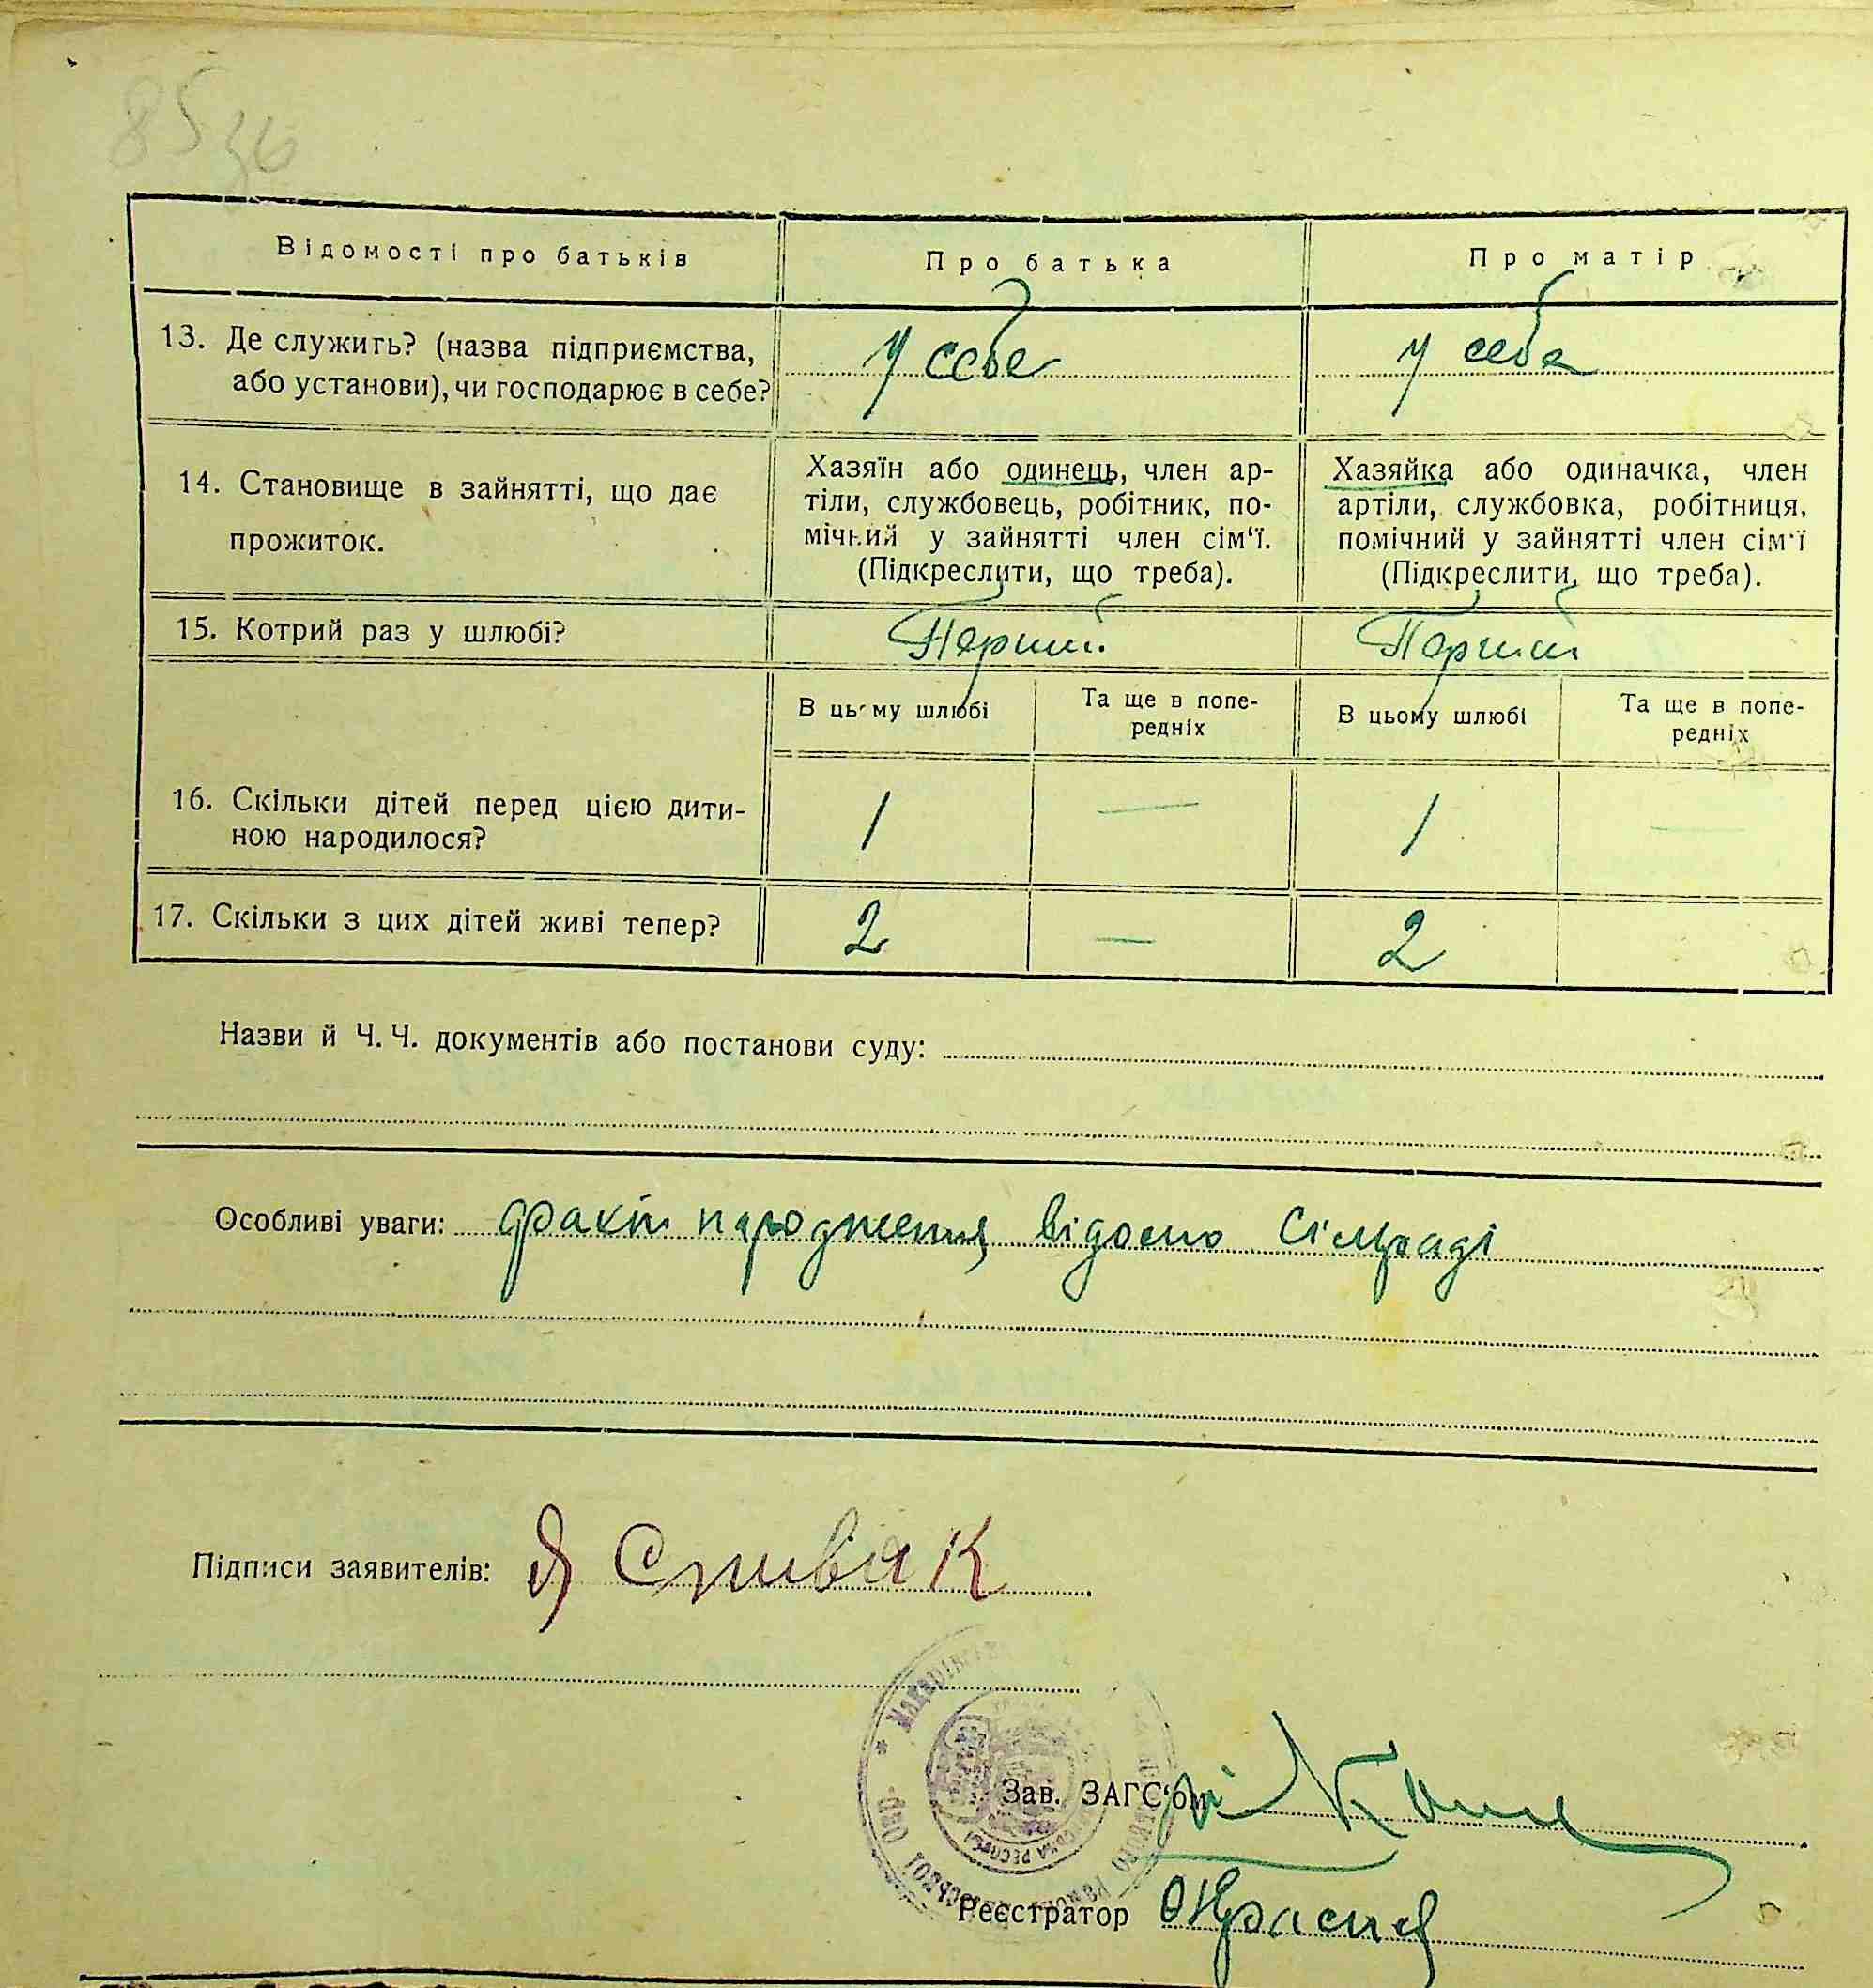 85 зб
Відомості про батьків
Про батька
Про матір
13. Де служить? (назва підприємства,
або установи), чи господарює в себе?
У себе
У себе
14. Становище в зайнятті, що дає
прожиток.
Хазяїн або одинець, член ар-
тіли, службовець, робітник, по-
мічний у зайнятті член сім‘ї.
(Підкреслити, що треба).
Хазяйка або одиначка, член
артіли, службовка, робітниця,
помічний у зайнятті член сім‘ї
(Підкреслити, що треба).
15. Котрий раз у шлюбі?
Перший
Перший
В цьому шлюбі
Та ще в попе-
редніх
В цьому шлюбі
Та ще в попе-
редніх
16. Скільки дітей перед цією дити-
ною народилося?
1 — 1 —
17. Скільки з цих дітей живі тепер?
2 — 2
Назви й Ч. Ч. документів або постанови суду:
Особливі уваги: факт народження відомо Сільраді
Підписи заявителів: Я Спивак
Зав. ЗАГС‘ом
Реєстратор